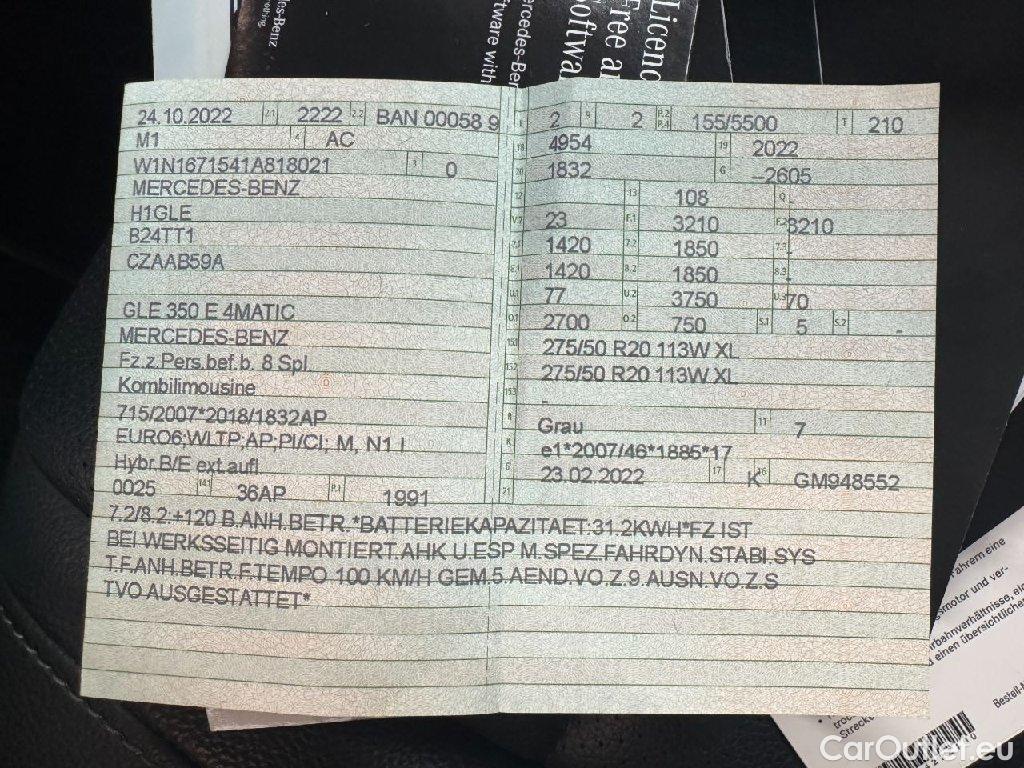 des-Benz
Mercedes-Ben
software with
Licenc
Free a
Softwa
24.10.2022 2.1 2222 2.2 BAN 00058 9
M1 4 AC
W1N1671541A818021 3 0
MERCEDES-BENZ
H1GLE
B24TT1
CZAAB59A
GLE 350 E 4MATIC
MERCEDES-BENZ
Fz.z.Pers.bef.b. 8 Spl.
Kombilimousine
715/2007*2018/1832AP
EURO6;WLTP;AP;PI/CI; M, N1 I
Hybr.B/E ext.aufl
0025 14.1 36AP P.1 1991
L 2 9 2 P.2 P.4 155/5500 T 210
18 4954 19 2022
20 1832 G –2605
12 13 108 Q -
V.7 23 F.1 3210 F.2 3210
7.1 1420 7.2 1850 7.3 -
8.1 1420 8.2 1850 8.3 -
U.1 77 U.2 3750 U.3 70
O.1 2700 O.2 750 S.1 5 S.2 -
15.1 275/50 R20 113W XL
15.2 275/50 R20 113W XL
15.3 -
R Grau 11 7
K e1*2007/46*1885*17
6 23.02.2022 17 K 16 GM948552
21
7.2/8.2:+120 B.ANH.BETR.*BATTERIEKAPAZITAET:31.2KWH*FZ IST
BEI WERKSSEITIG MONTIERT.AHK U.ESP M.SPEZ.FAHRDYN.STABI.SYS
T.F.ANH.BETR.F.TEMPO 100 KM/H GEM.5.AEND.VO.Z.9.AUSN.VO.Z.S
TVO AUSGESTATTET*
Fahrern eine
smotor und ver-
rbahnverhältnisse, ei
d einen übersichtliche
Bestell-
troc
Streck
CarOutlet.eu